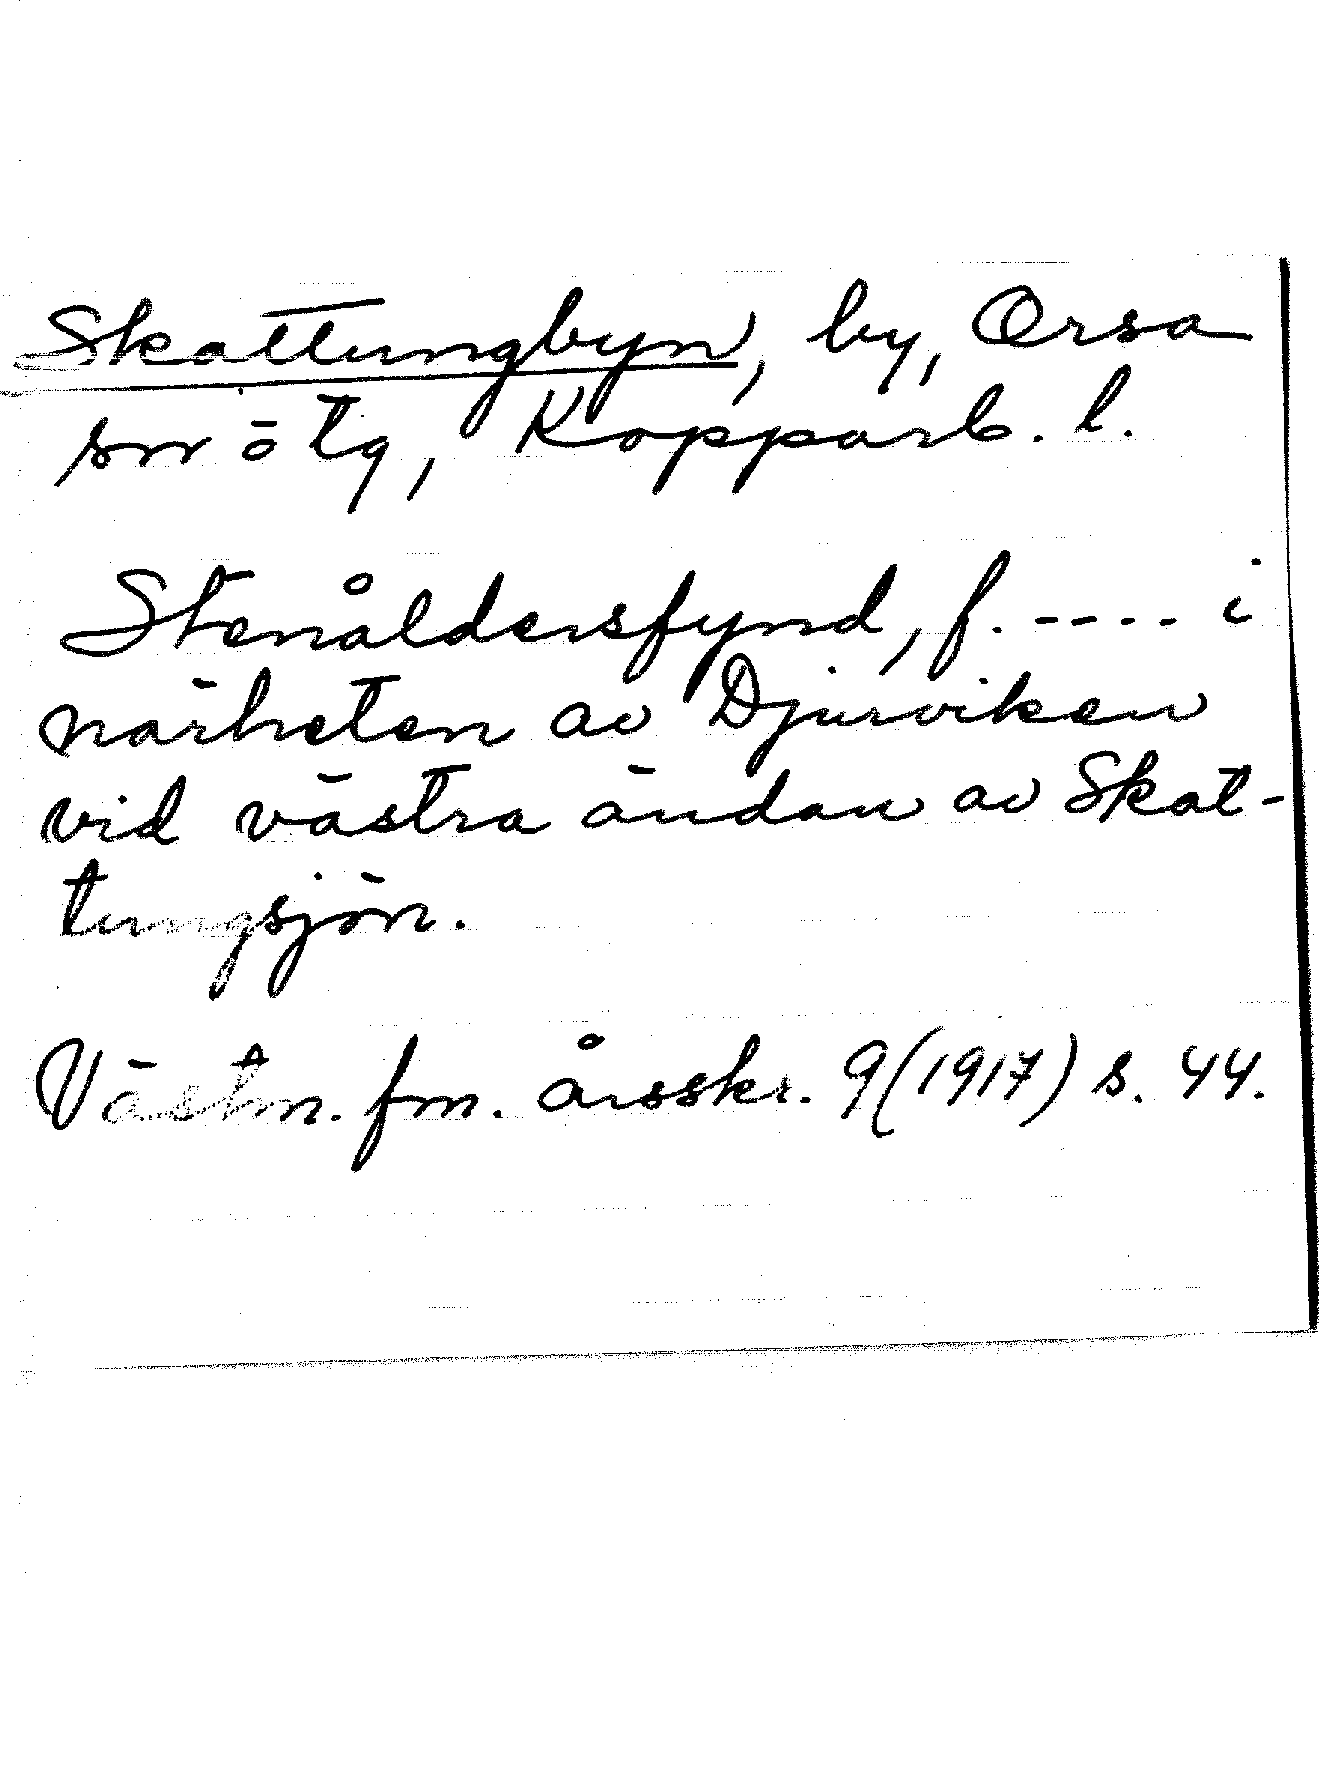 Skattungbyn, by, Orsa
sn ö tg, Kopparb. l.
Stenåldersfynd, f. ---- i
närheten av Djurviken
vid västra ändan av Skat-
tungsjön.
Västm. fm. årsskr. 9(1917) s. 44.